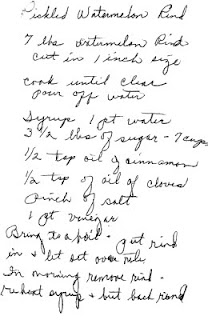 Pickled Watermelon Rind
7 lbs watermelon Rind
cut in 1 inch size
cook until clear
pour off water
Syrup 1 pt water
3 1/2 lbs of sugar - 7 cups
1/2 tsp oil of cinnamon
1/2 tsp of oil of cloves
Pinch of salt
1 pt vinegar
Bring to a boil - put rind
in & let set over nite
In morning remove rind -
reheat syrup & put back rind